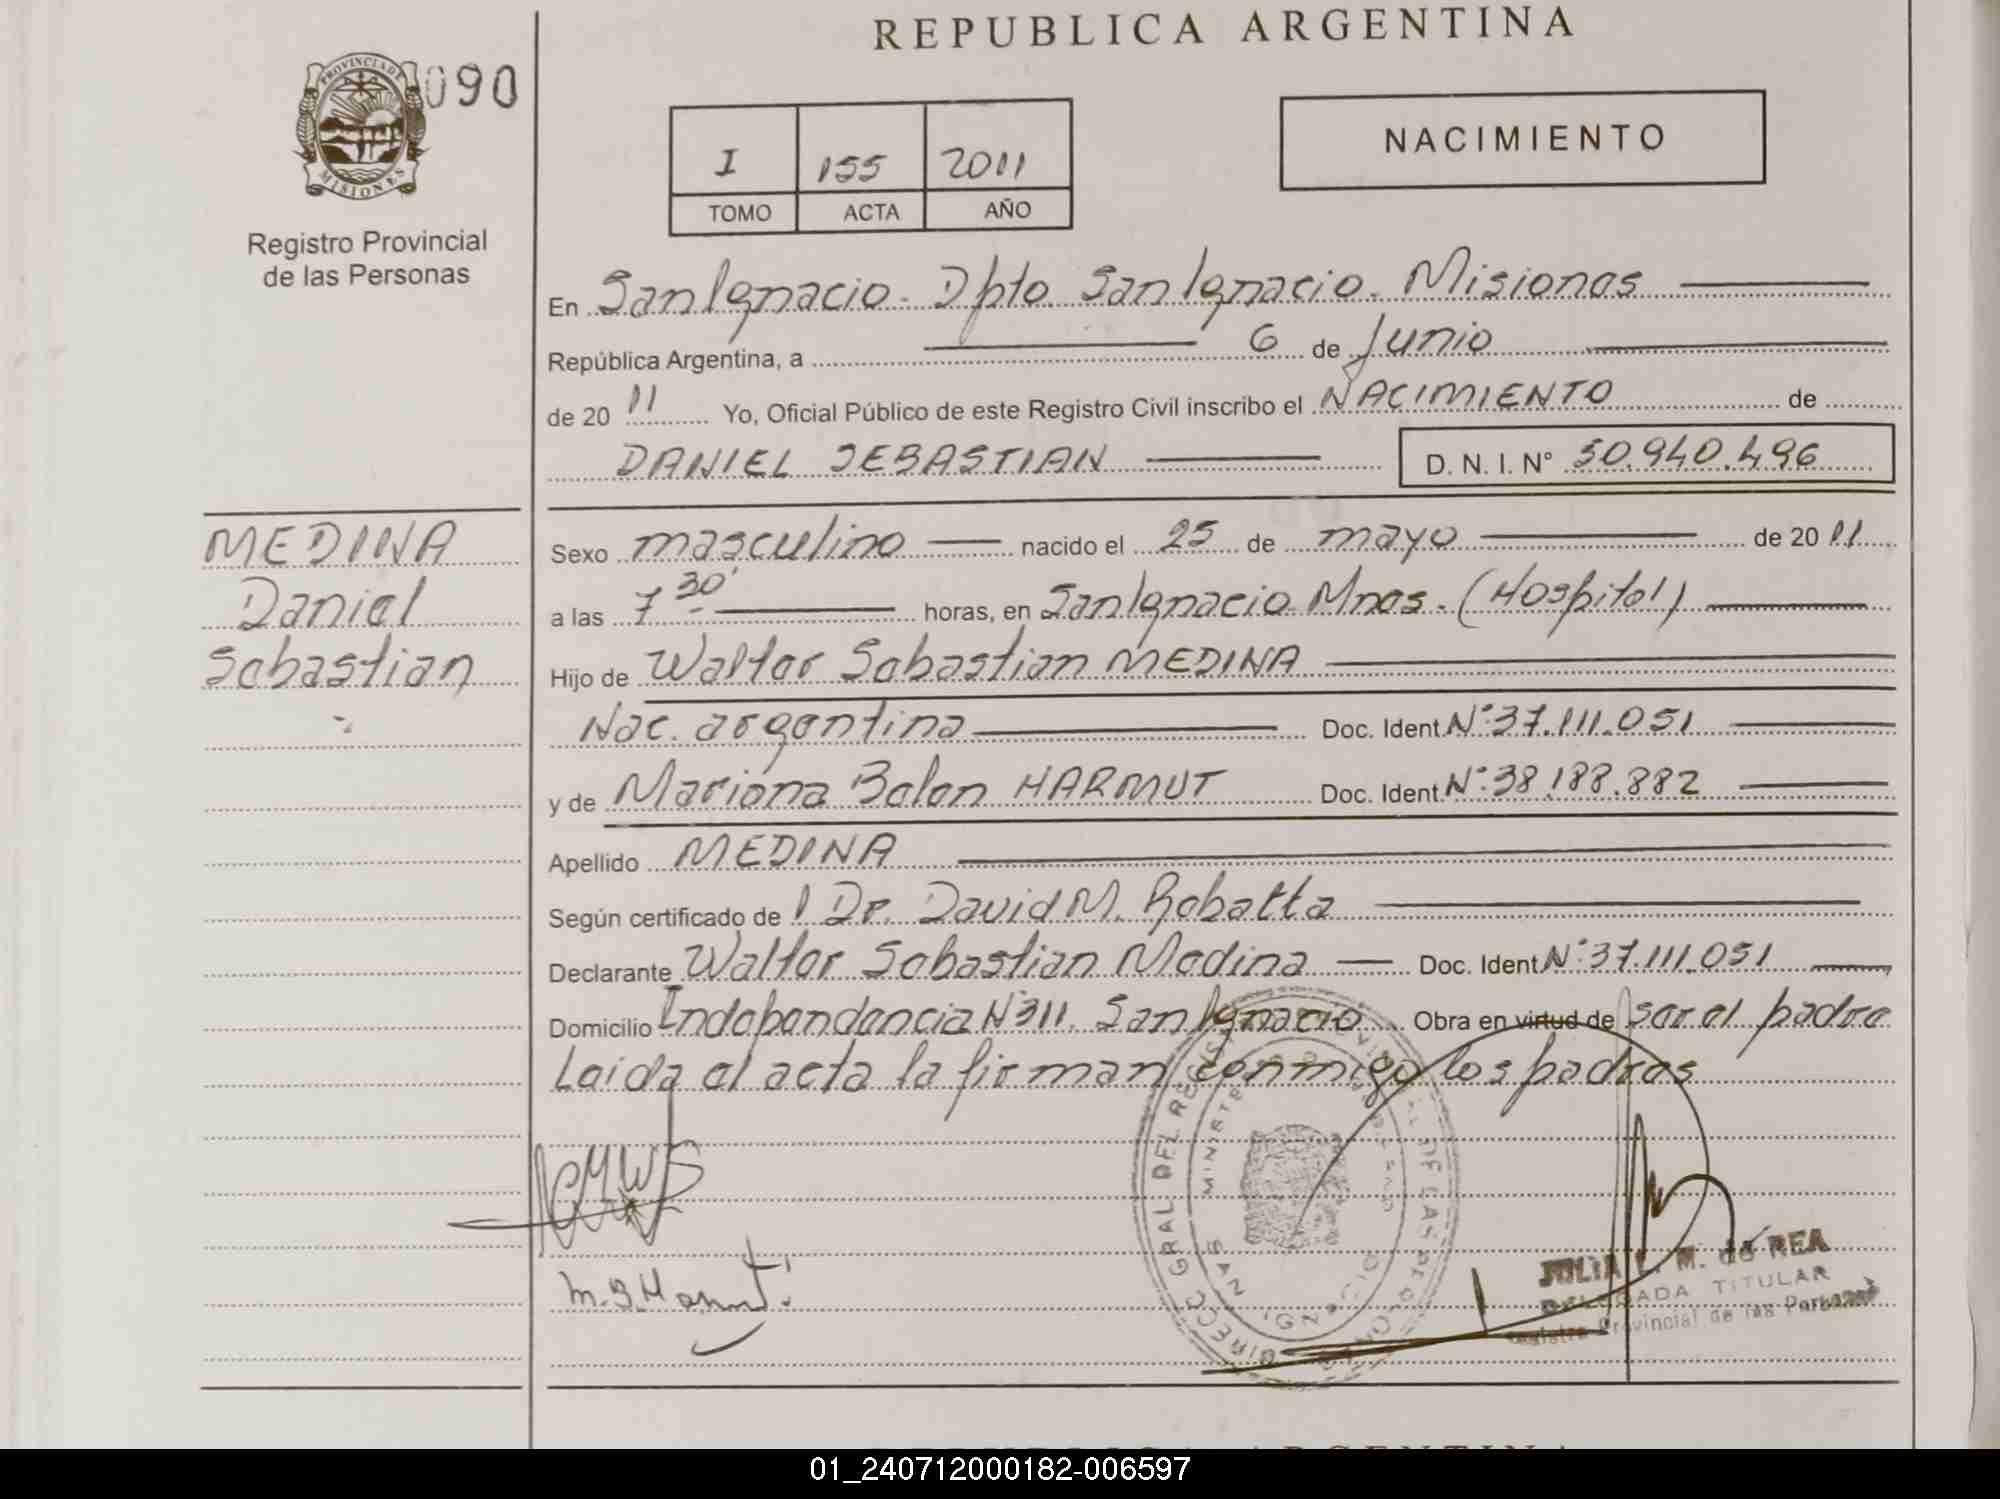 REPUBLICA ARGENTINA
PROVINCIA DE
MISIONES
090
Registro Provincial
de las Personas
I 155 2011
TOMO ACTA AÑO
NACIMIENTO
En San Ignacio - Dpto San Ignacio - Misiones
República Argentina, a 6 de Junio
de 20 11 Yo, Oficial Público de este Registro Civil inscribo el NACIMIENTO de
DANIEL SEBASTIAN D. N. I. N° 50.940.496
MEDINA
Daniel
Sebastian
Sexo masculino nacido el 25 de mayo de 20 11
a las 7 30' horas, en San Ignacio Mnes. (Hospital)
Hijo de Walter Sebastian MEDINA
Nac. argentina Doc. Ident. N° 37.111.051
y de Mariana Belen HARMUT Doc. Ident. N° 38.188.882
Apellido MEDINA
Según certificado de Dr. David M. Robatta
Declarante Walter Sebastian Medina Doc. Ident. N° 37.111.051
Domicilio Independencia N° 311. San Ignacio Obra en virtud de ser el padre
Leida el acta la firman conmigo los padres
DIRECC GRAL DEL REGIST DE LAS PERSONAS
MINISTE
SAN IGNACIO
JULIA L. M. de REA
DELEGADA TITULAR
Registro Provincial de las Personas
REPUBLICA ARGENTINA
01_240712000182-006597